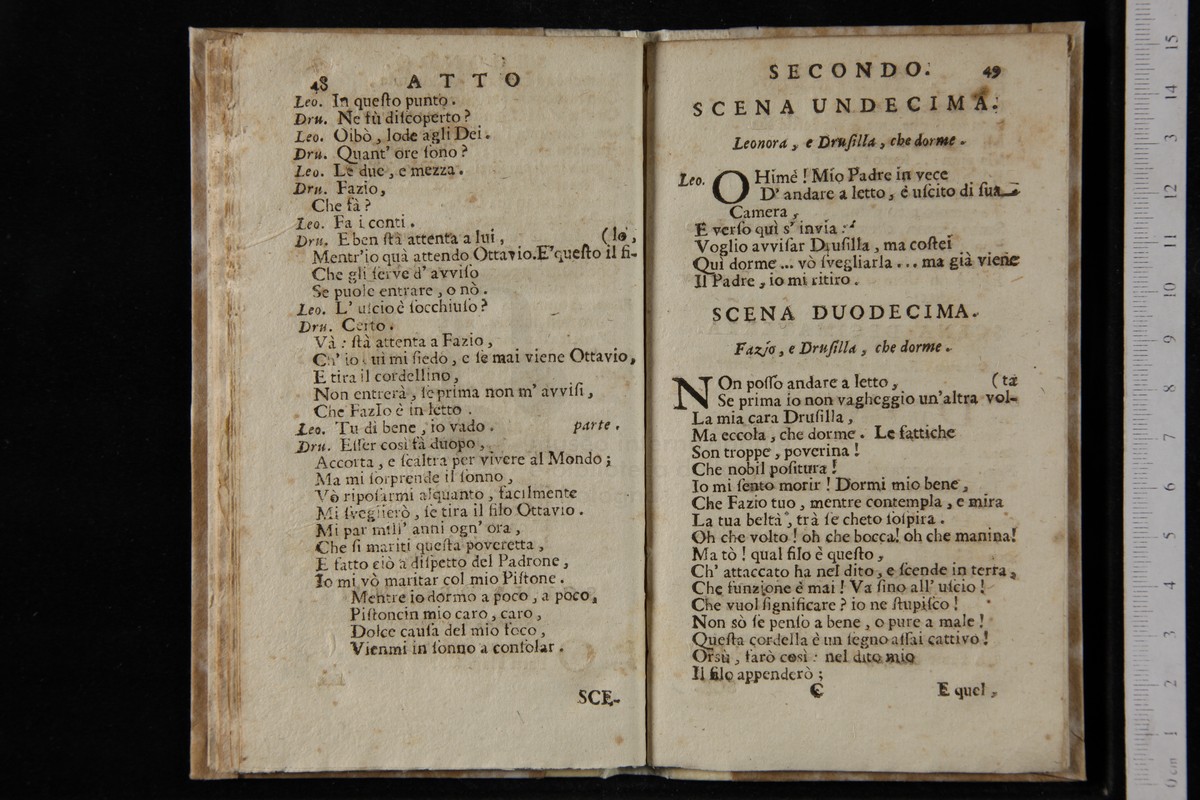 48 ATTO
Leo. In queſto punto.
Dru. Ne fù diſcoperto?
Leo. Oibò, lode agli Dei.
Dru. Quant' ore ſono?
Leo. Le due, e mezza.
Dru. Fazio,
Che fà?
Leo. Fa i conti.
Dru. E ben ſtà attenta a lui, (lo,
Mentr'io quà attendo Ottavio. E'queſto il fi-
Che gli ſerve d' avviſo
Se puole entrare, o nò.
Leo. L' uſcio è ſocchiuſo?
Dru. Certo.
Và: ſtà attenta a Fazio,
Ch' io quì mi ſiedo, e ſe mai viene Ottavio,
E tira il cordellino,
Non entrerà, ſe prima non m' avviſi,
Che FazIo è in letto.
Leo. Tu di bene, io vado. parte.
Dru. Eſſer così fà duopo,
Accorta, e ſcaltra per vivere al Mondo;
Ma mi ſorprende il ſonno,
Vò ripoſarmi alquanto, facilmente
Mi ſveglierò, ſe tira il filo Ottavio.
Mi par mill' anni ogn' ora,
Che ſi mariti queſta poveretta,
E fatto ciò a diſpetto del Padrone,
Io mi vò maritar col mio Piſtone.
Mentre io dormo a poco, a poco,
Piſtoncin mio caro, caro,
Dolce cauſa del mio foco,
Vienmi in ſonno a conſolar.
SCE-
SECONDO. 49
SCENA UNDECIMA.
Leonora, e Druſilla, che dorme.
Leo. OHimé! Mio Padre in vece
D' andare a letto, é uſcito di ſua
Camera,
E verſo quì s' invia:
Voglio avviſar Druſilla, ma coſtei
Qui dorme... vò ſvegliarla... ma già viene
Il Padre, io mi ritiro.
SCENA DUODECIMA.
Fazio, e Druſilla, che dorme.
NOn poſſo andare a letto, (ta
Se prima io non vagheggio un'altra vol-
La mia cara Druſilla,
Ma eccola, che dorme. Le fattiche
Son troppe, poverina!
Che nobil poſitura!
Io mi ſento morir! Dormi mio bene,
Che Fazio tuo, mentre contempla, e mira
La tua beltà, trà ſe cheto ſoſpira.
Oh che volto! oh che bocca! oh che manina!
Ma tò! qual filo è queſto,
Ch' attaccato ha nel dito, e ſcende in terra,
Che funzione è mai! Va ſino all' uſcio!
Che vuol ſignificare? io ne ſtupiſco!
Non sò ſe penſo a bene, o pure a male!
Queſta cordella è un ſegno aſſai cattivo!
Orsù, farò così: nel dito mio
Il filo appenderò;
C E quel,
0 cm 1 2 3 4 5 6 7 8 9 10 11 12 13 14 15